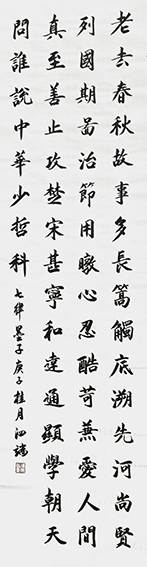 老去春秋故事多長篙觸底溯先河尚賢
列國期啚治節用暾心忍酷苛兼愛人間
真至善止攻楚宋甚寧和達通顯學朝天
問誰說中華少哲科七律墨子庚子桂月泗端